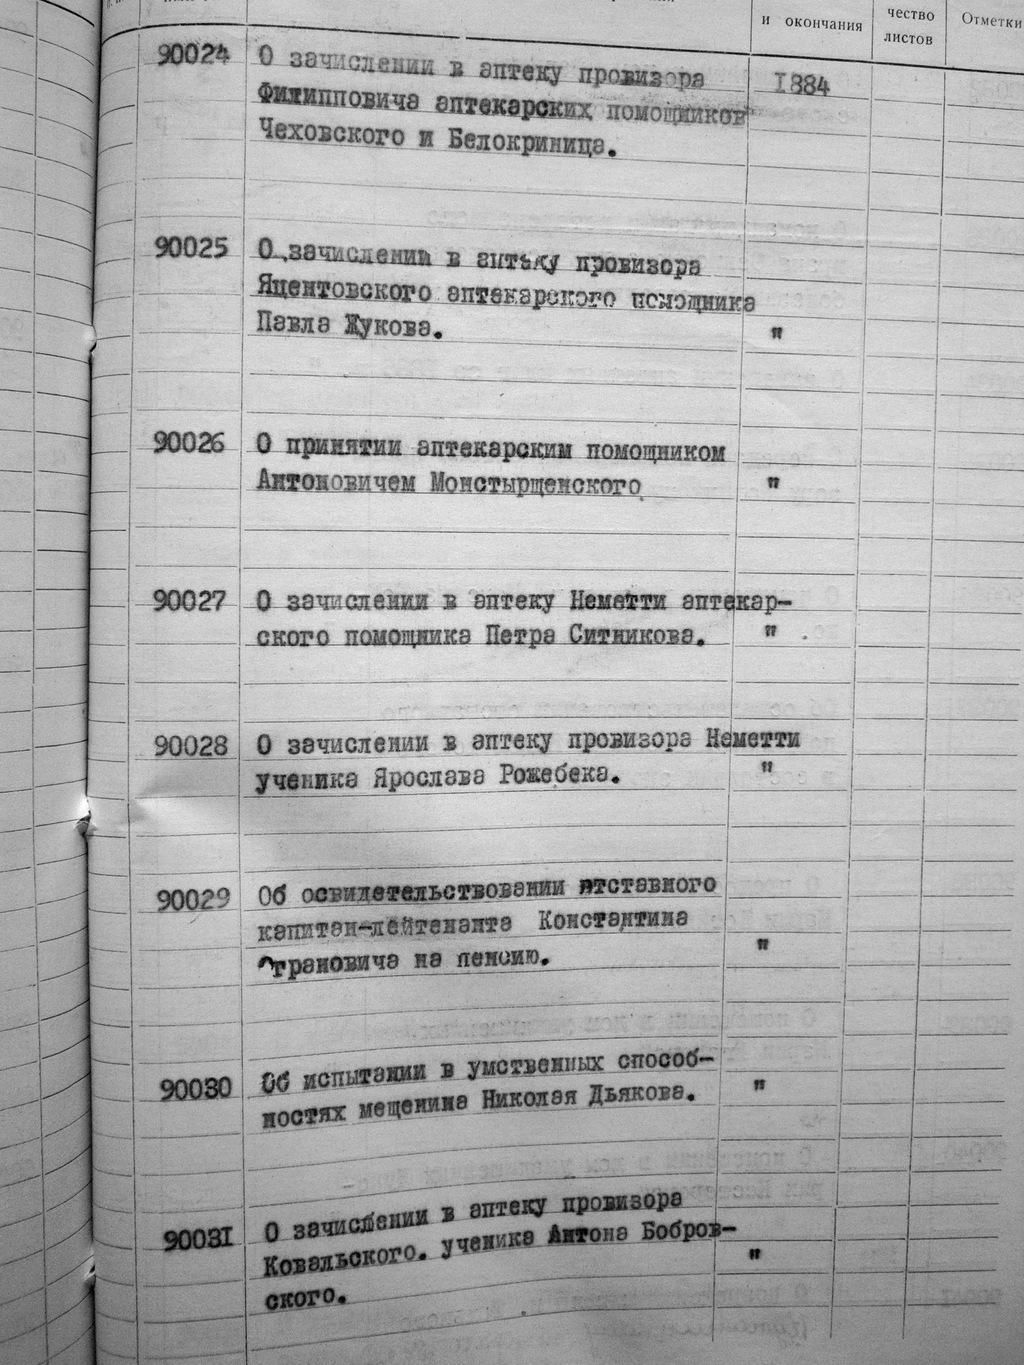 и окончания
чество
листов
Отметки
90024 О зачислении в аптеку провизора 1884
Филипповича аптекарских помощников
Чеховского и Белокриница.
90025 О зачислении в аптеку провизора
Яцентовского аптекарского помощника
Павла Жукова. "
90026 О принятии аптекарским помощником
Антоновичем Монстырщенского "
90027 О зачислении в аптеку Неметти аптекар-
ского помощника Петра Ситникова. "
90028 О зачислении в аптеку провизора Неметти
ученика Ярослава Рожебека. "
90029 Об освидетельствовании отставного
капитан-лейтенанта Константина
на пенсию. "
90030 Об испытании в умственных способ-
ностях мещенина Николая Дьякова. "
90031 О зачислении в аптеку провизора
Ковальского. ученика Антона Бобров-
ского. "